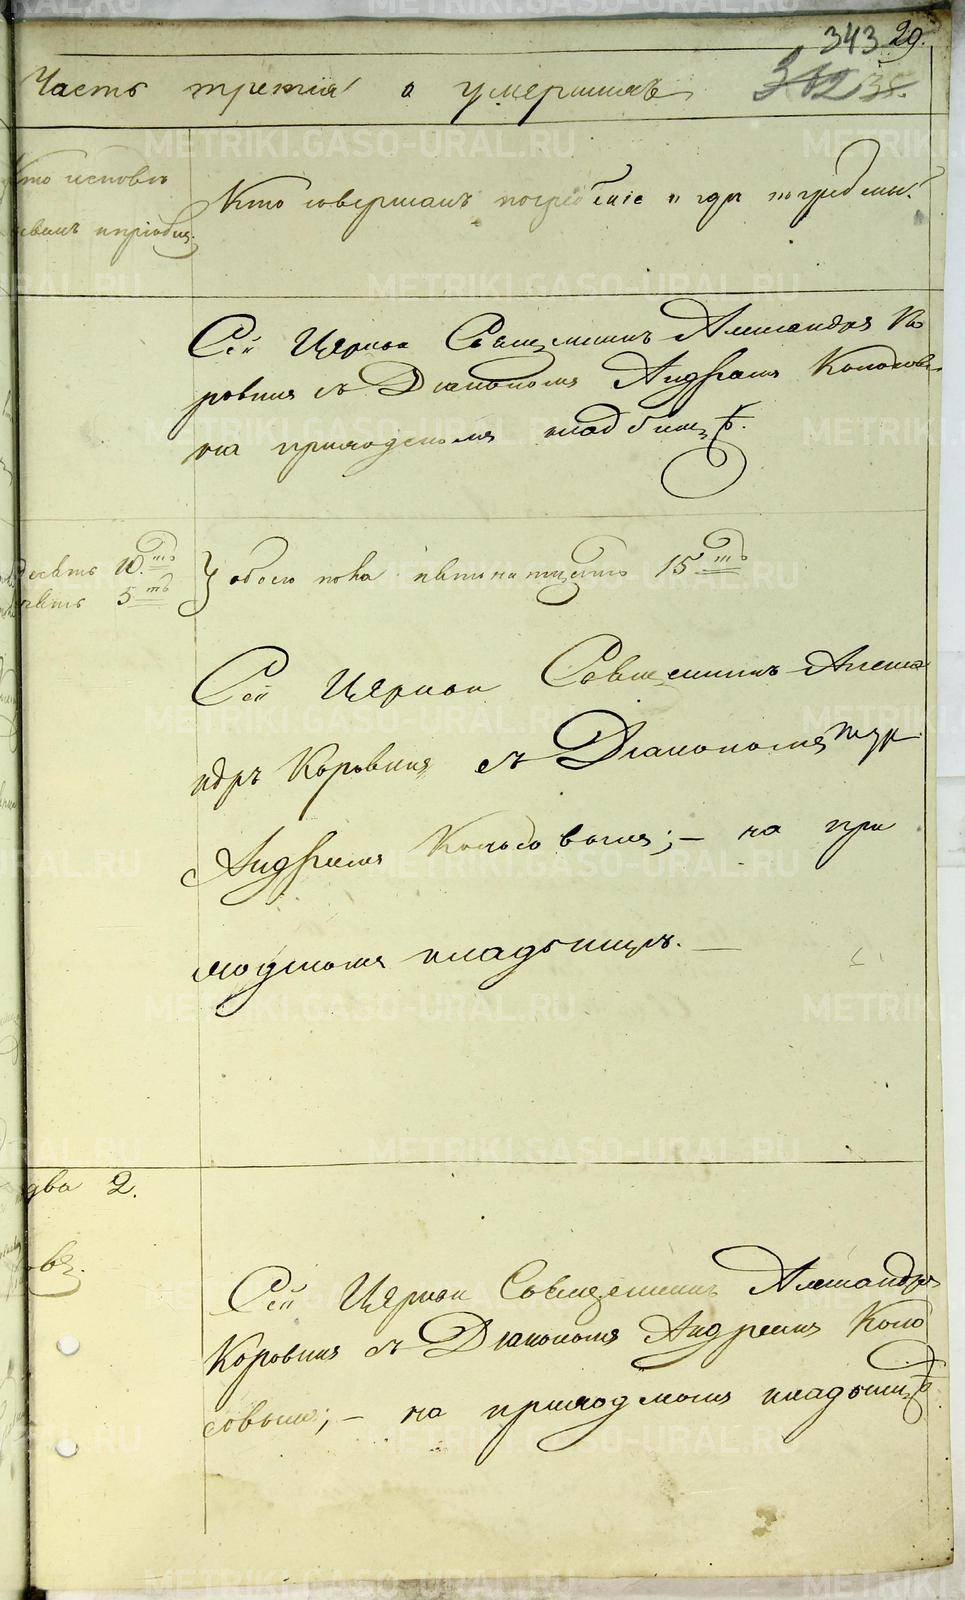 343 29.
Часть третія о умершихъ
342 38.
Кто исповѣ
Кто совершалъ погребеніе и гдѣ погребены?
валъ и пріобщ.
Сей Церкви Священникъ Александръ Ко
ровинъ съ Діакономъ Андреемъ Колосовы
на приходскомъ кладбищѣ.
десять 10.ть } обоего пола пятнатцать 15ть
пять 5ть
Сей Церкви Священникъ Алекса
ндръ Коровинъ съ Діакономъ
Андреемъ Колосовымъ; — на при
ходскомъ кладбищѣ. —
два 2.
Сей Церкви Священникъ Александръ
Коровинъ съ Діакономъ Андреемъ Коло
совымъ; — на приходскомъ кладбищѣ
METRIKI.GASO-URAL.RU